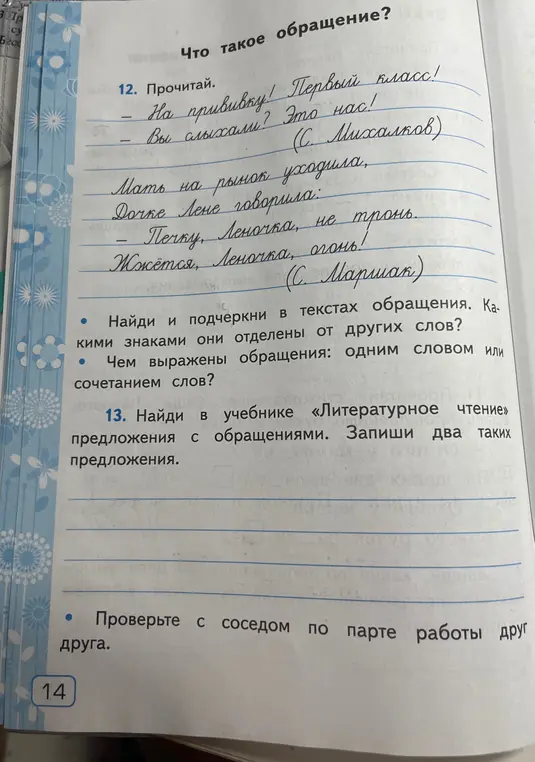 Что такое обращение?
12. Прочитай.
– На прививку! Первый класс!
– Вы слыхали? Это нас!
(С. Михалков)
Мать на рынок уходила,
Дочке Лене говорила:
– Печку, Леночка, не тронь.
Жжётся, Леночка, огонь!
(С. Маршак)
• Найди и подчеркни в текстах обращения. Ка-
кими знаками они отделены от других слов?
• Чем выражены обращения: одним словом или
сочетанием слов?
13. Найди в учебнике «Литературное чтение»
предложения с обращениями. Запиши два таких
предложения.
• Проверьте с соседом по парте работы друг
друга.
14